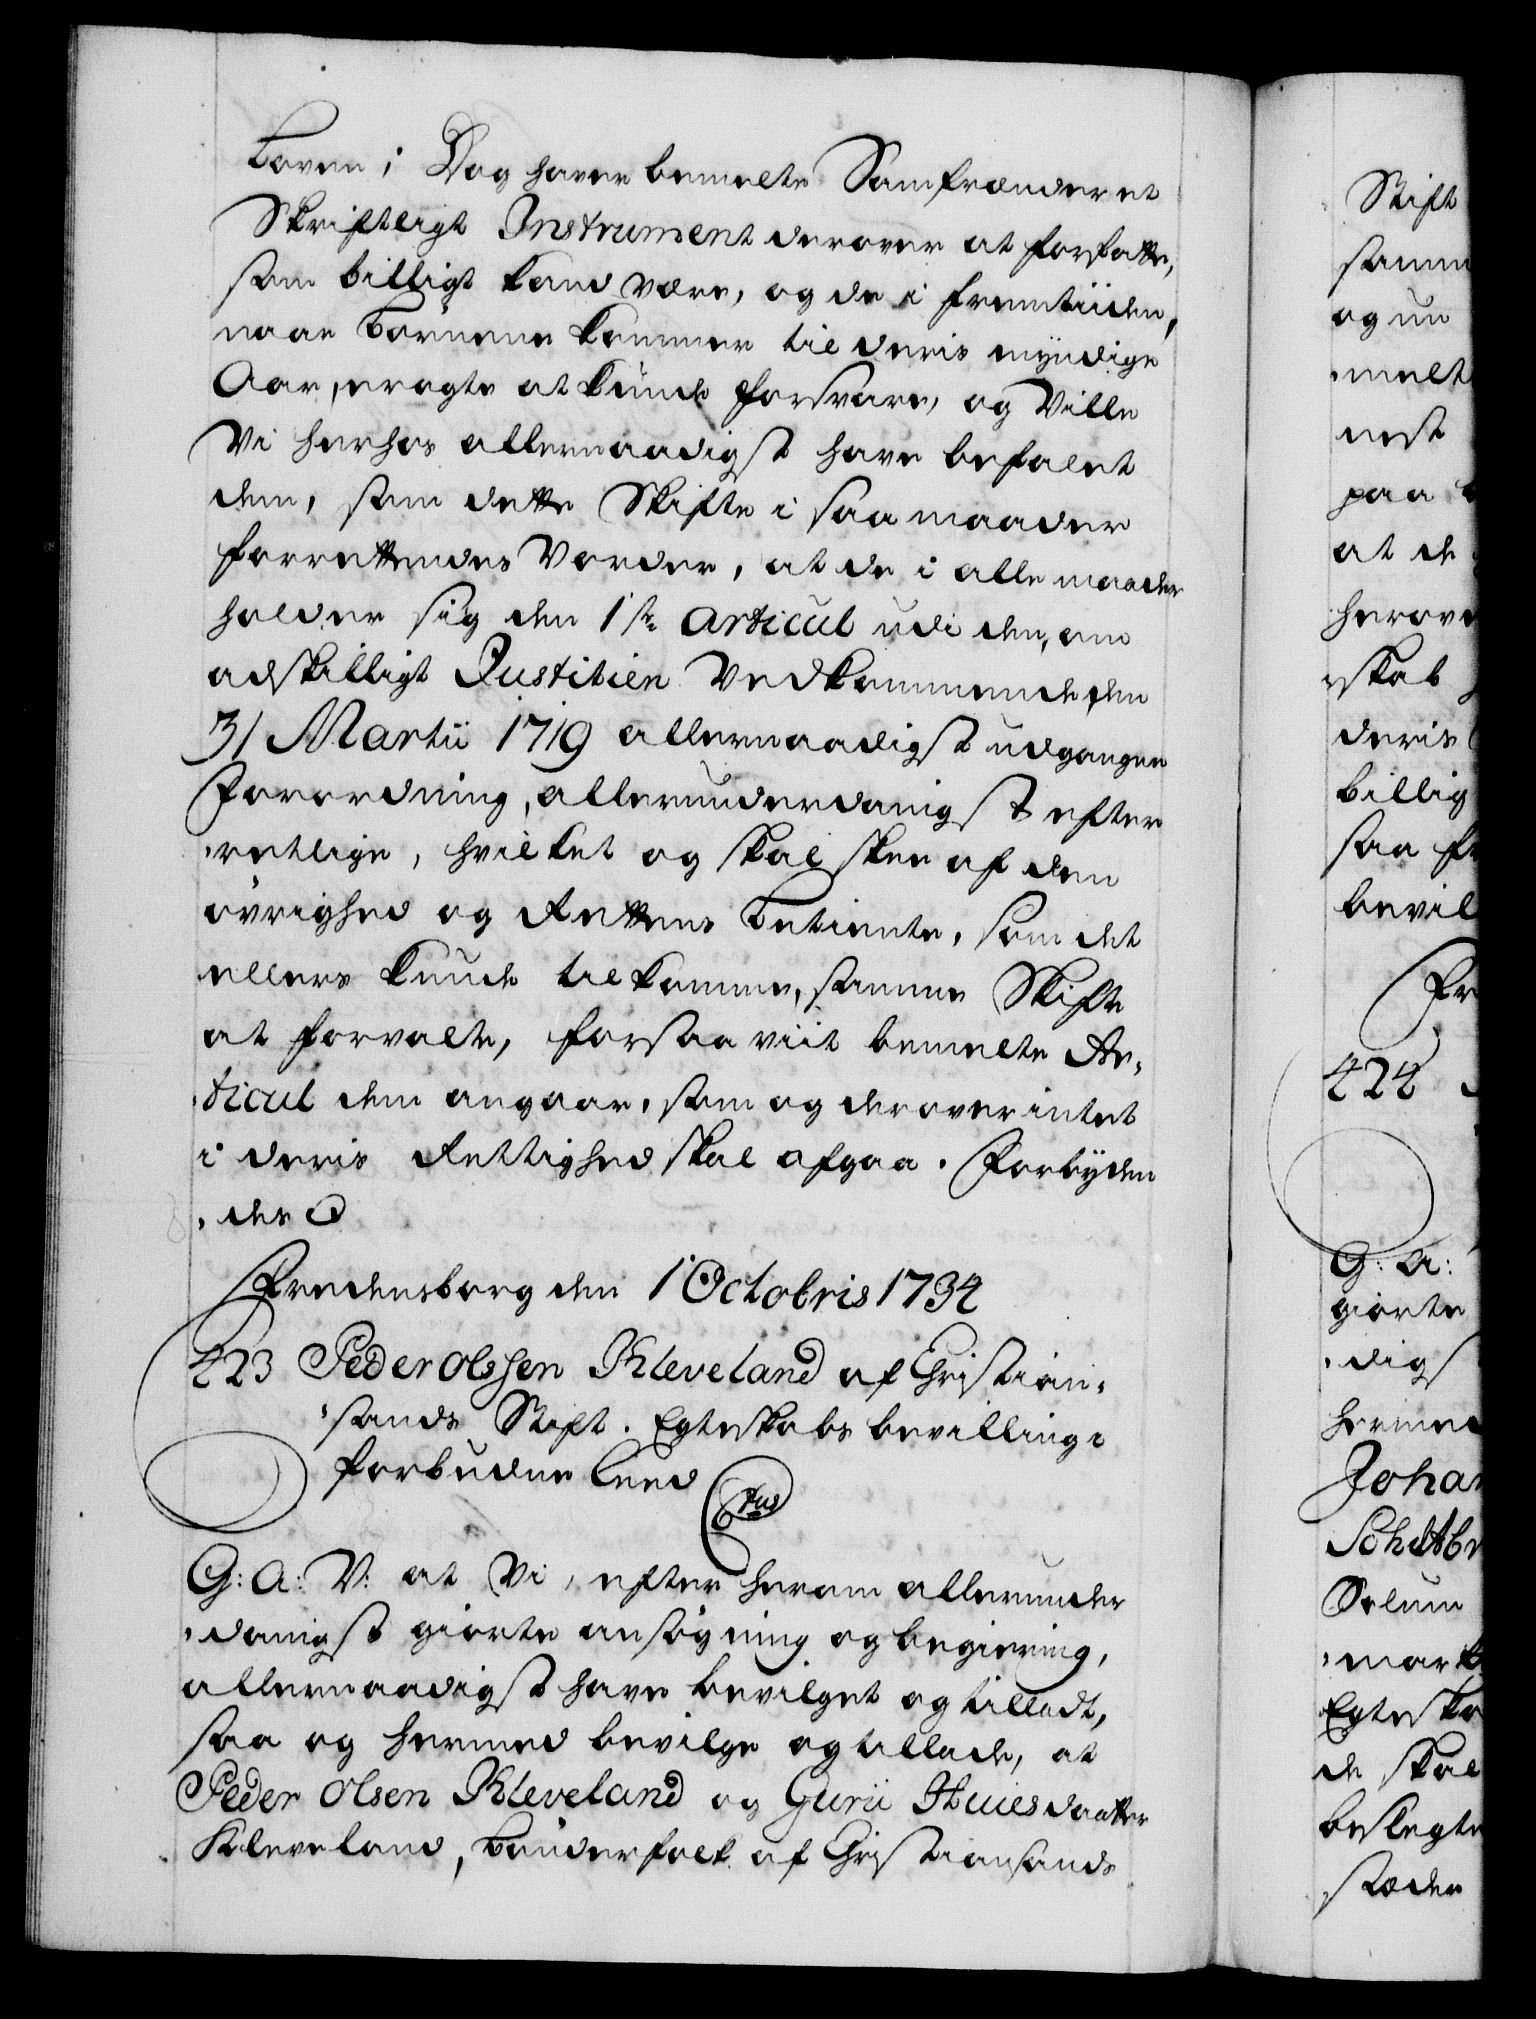 Loven; Dog haver bemelte Samfrænder et
Skriftligt Instrument derover at forfatte,
som billigt kand være, og de i fremtiiden,
naar Börnene kommer til deris myndige
Aar, eragte at kunde forsvare, og Ville
Vi herhos allernaadigst have befalet
dem, som dette Skifte i saa maader
forrettendes Vorder, at de i alle maader
holder sig den 1ste Articul udi den, om
adskilligt Justitien Vedkommende, den
31 Martii 1719 allernaadigst udgangne
Forordning, allerunderdanigst efter
rettlige, hvilket og skal skee af den
övrighed og Rettens Betiente, som det
ellers kunde tilkomme, samme Skifte
at forvalte, forsaaviit bemelte Ar-
ticul dem angaar, som og derover intet
i deris Rettighed skal afgaa. Forbyden
de
Fredensborg den 1 Octobris 1734
423 Peder Olssen Kleveland af Christian-
sands Stift. Egteskabs bevilling i
forbudne Leed
G: A: V: at Vi, efter herom allerunder
danigst giorte ansøgning og begiering,
allernaadigst have bevilget og tilladt,
saa og hermed bevilge og tillade, at
Peder Olsen Kleveland og Gurii daatter
Kleveland, Bönderfolk af Christiansands
Stift
samm
og un
melt
nest
paa
at de
herove
skab
deris
billig
saa fr
bevil
Fr
424
G: A:
giorte
digs
hermed
Johan
Selum
mark
Egteska
de skal
beslegte
stæder